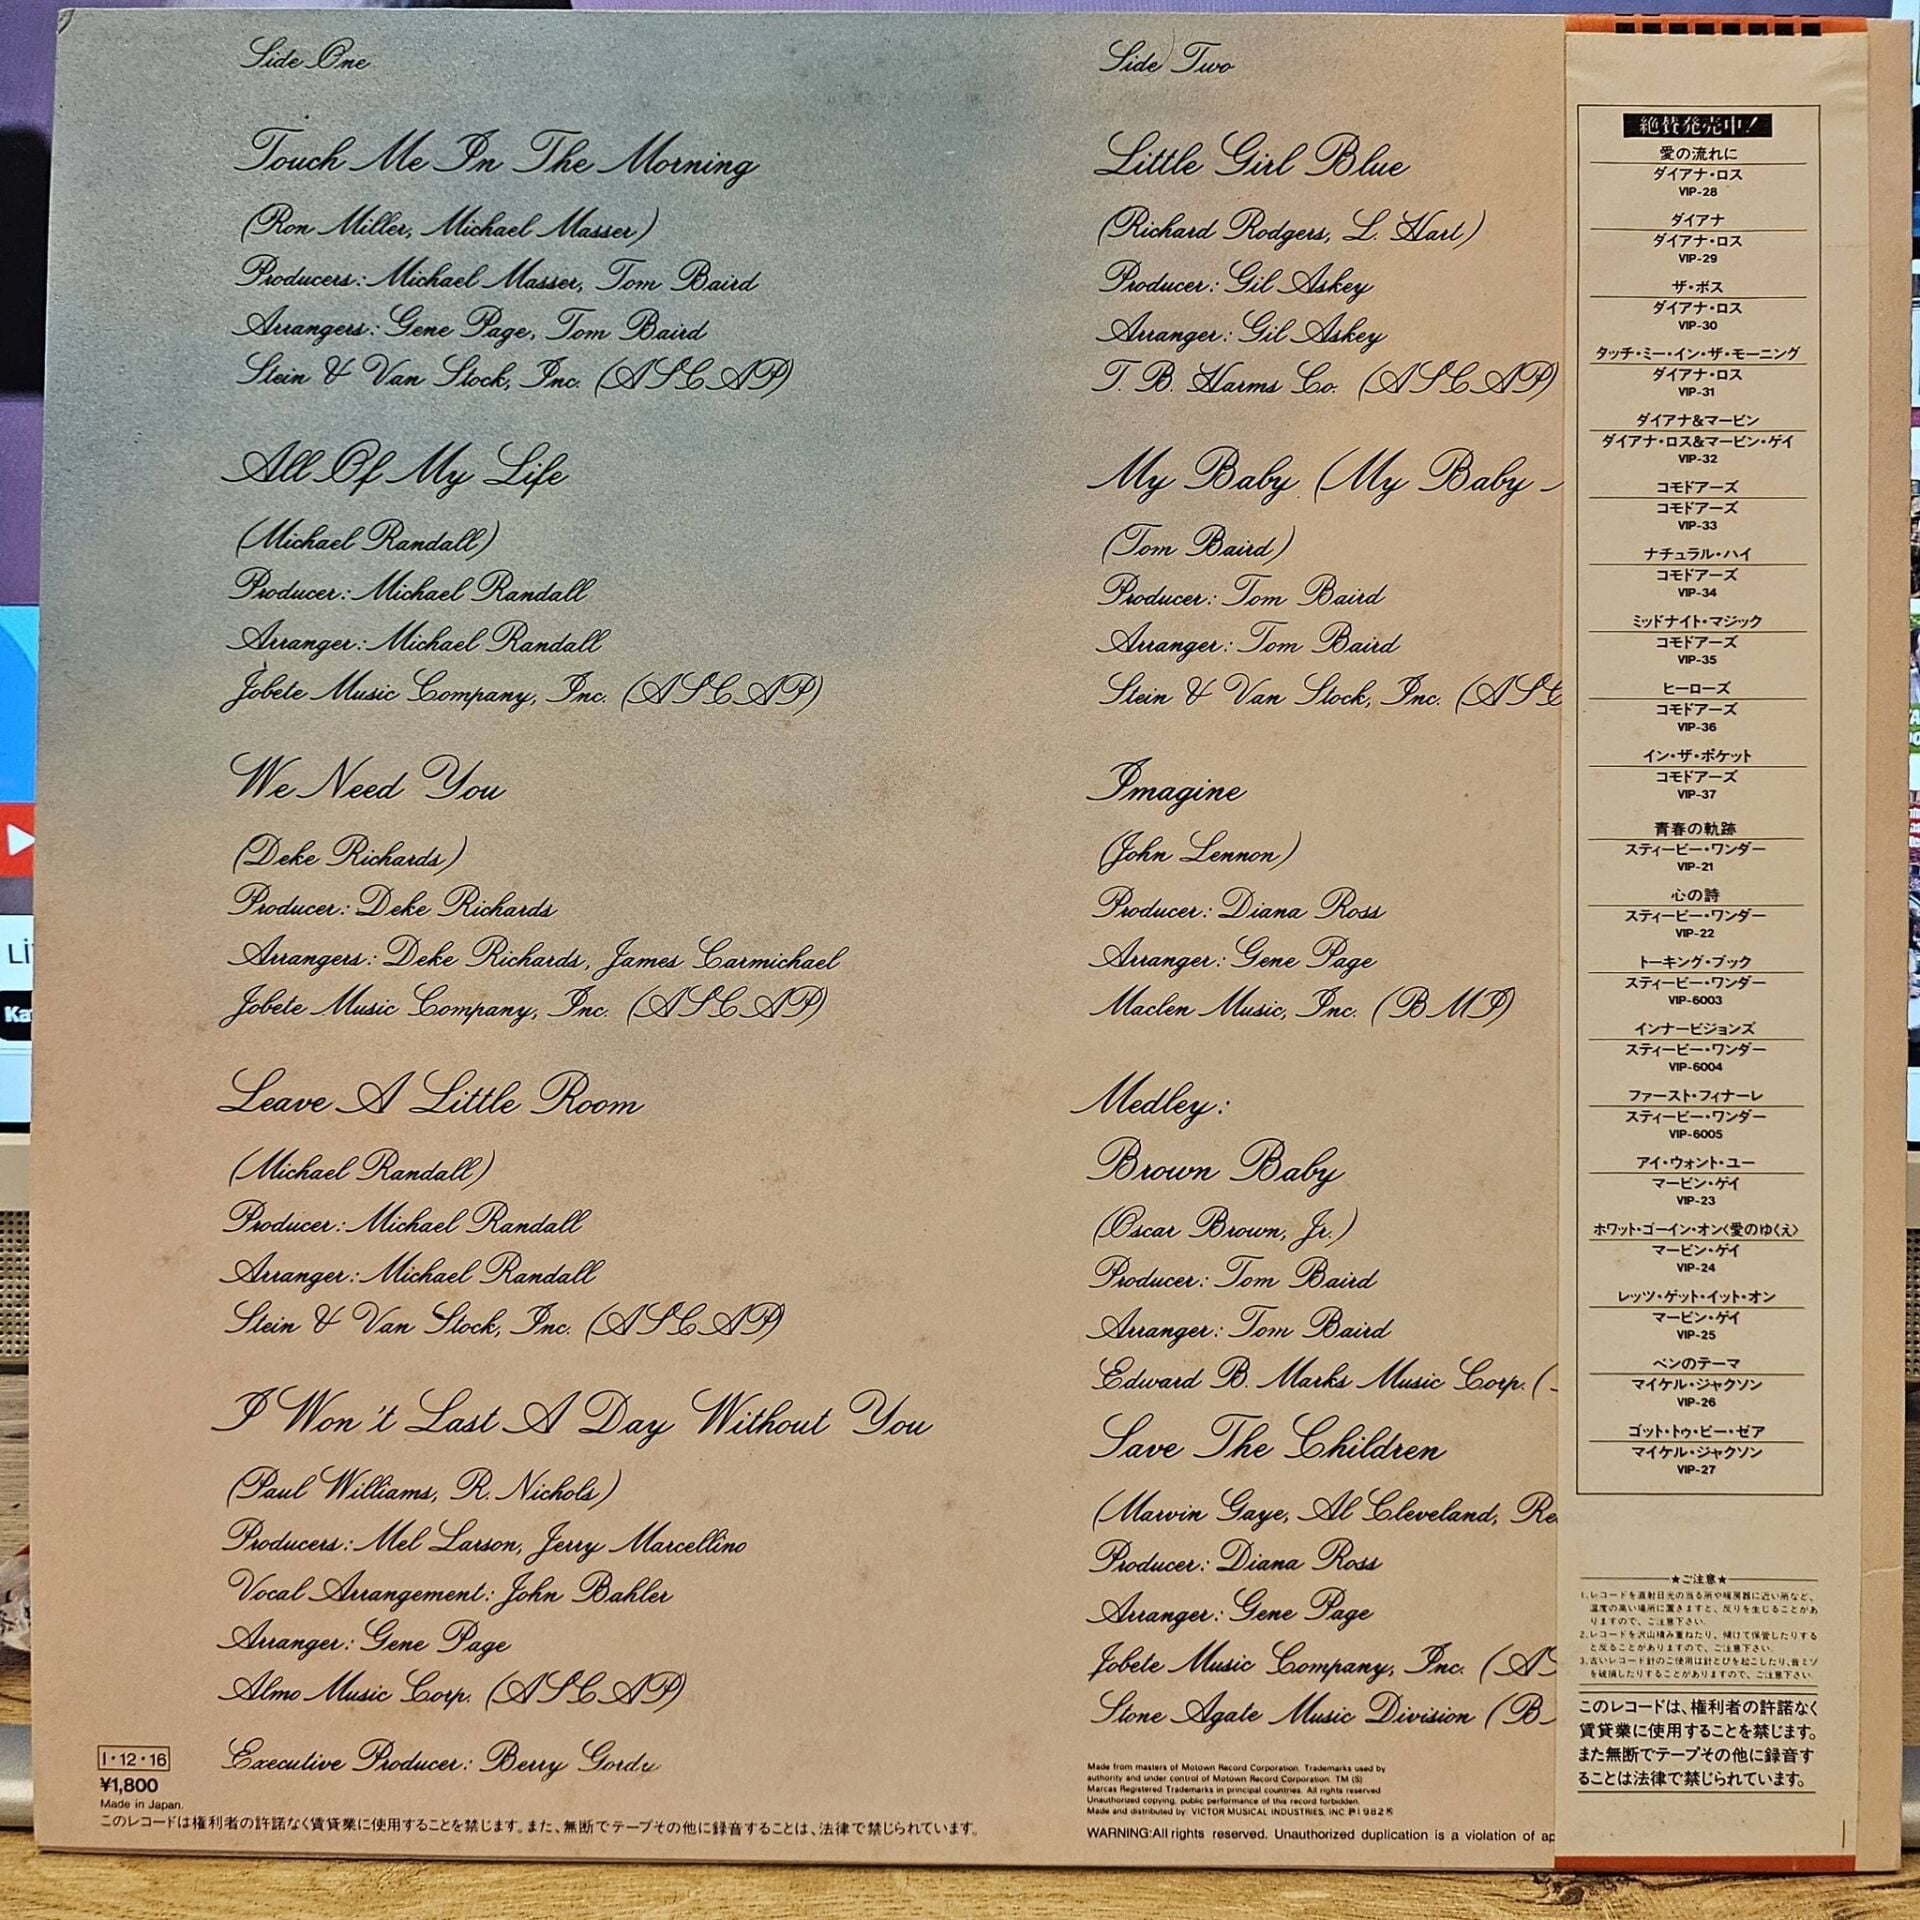 Side One
Touch Me In The Morning
(Ron Miller, Michael Masser)
Producers: Michael Masser, Tom Baird
Arrangers: Gene Page, Tom Baird
Stein & Van Stock, Inc. (ASCAP)
All Of My Life
(Michael Randall)
Producer: Michael Randall
Arranger: Michael Randall
Jobete Music Company, Inc. (ASCAP)
We Need You
(Deke Richards)
Producer: Deke Richards
Arrangers: Deke Richards, James Carmichael
Jobete Music Company, Inc. (ASCAP)
Leave A Little Room
(Michael Randall)
Producer: Michael Randall
Arranger: Michael Randall
Stein & Van Stock, Inc. (ASCAP)
I Won't Last A Day Without You
(Paul Williams, R. Nichols)
Producers: Mel Larson, Jerry Marcellino
Vocal Arrangement: John Bahler
Arranger: Gene Page
Almo Music Corp. (ASCAP)
Executive Producer: Berry Gordy
I・12・16
¥1,800
Made in Japan.
このレコードは権利者の許諾なく賃貸業に使用することを禁じます。また、無断でテープその他に録音することは、法律で禁じられています。
Side Two
Little Girl Blue
(Richard Rodgers, L. Hart)
Producer: Gil Askey
Arranger: Gil Askey
T. B. Harms Co. (ASCAP)
My Baby (My Baby
(Tom Baird)
Producer: Tom Baird
Arranger: Tom Baird
Stein & Van Stock, Inc. (ASC
Imagine
(John Lennon)
Producer: Diana Ross
Arranger: Gene Page
Maclen Music, Inc. (BMI)
Medley:
Brown Baby
(Oscar Brown, Jr.)
Producer: Tom Baird
Arranger: Tom Baird
Edward B. Marks Music Corp. (
Save The Children
(Marvin Gaye, Al Cleveland, Re
Producer: Diana Ross
Arranger: Gene Page
Jobete Music Company, Inc. (AS
Stone Agate Music Division (B
Made from masters of Motown Record Corporation. Trademarks used by
authority and under control of Motown Record Corporation. TM (S)
Marcas Registered Trademarks in principal countries. All rights reserved
Unauthorized copying, public performance of this record forbidden.
Made and distributed by: VICTOR MUSICAL INDUSTRIES, INC. Ⓟ1982
WARNING:All rights reserved. Unauthorized duplication is a violation of ap
絶賛発売中!
愛の流れに
ダイアナ・ロス
VIP-28
ダイアナ
ダイアナ・ロス
VIP-29
ザ・ボス
ダイアナ・ロス
VIP-30
タッチ・ミー・イン・ザ・モーニング
ダイアナ・ロス
VIP-31
ダイアナ&マービン
ダイアナ・ロス&マービン・ゲイ
VIP-32
コモドアーズ
コモドアーズ
VIP-33
ナチュラル・ハイ
コモドアーズ
VIP-34
ミッドナイト・マジック
コモドアーズ
VIP-35
ヒーローズ
コモドアーズ
VIP-36
イン・ザ・ポケット
コモドアーズ
VIP-37
青春の軌跡
スティービー・ワンダー
VIP-21
心の詩
スティービー・ワンダー
VIP-22
トーキング・ブック
スティービー・ワンダー
VIP-6003
インナービジョンズ
スティービー・ワンダー
VIP-6004
ファースト・フィナーレ
スティービー・ワンダー
VIP-6005
アイ・ウォント・ユー
マービン・ゲイ
VIP-23
ホワット・ゴーイン・オン〈愛のゆくえ〉
マービン・ゲイ
VIP-24
レッツ・ゲット・イット・オン
マービン・ゲイ
VIP-25
ベンのテーマ
マイケル・ジャクソン
VIP-26
ゴット・トゥ・ビー・ゼア
マイケル・ジャクソン
VIP-27
★ご注意★
1.レコードを直射日光の当る所や暖房器に近い所など、
温度の高い場所に置きますと、反りを生じることがあ
りますので、ご注意下さい。
2.レコードを沢山積み重ねたり、傾けて保管したりする
と反ることがありますので、ご注意下さい。
3.古いレコード針のご使用は針とびを起こしたり、音ミゾ
を破損したりすることがありますので、ご注意下さい。
このレコードは、権利者の許諾なく
賃貸業に使用することを禁じます。
また無断でテープその他に録音す
ることは法律で禁じられています。